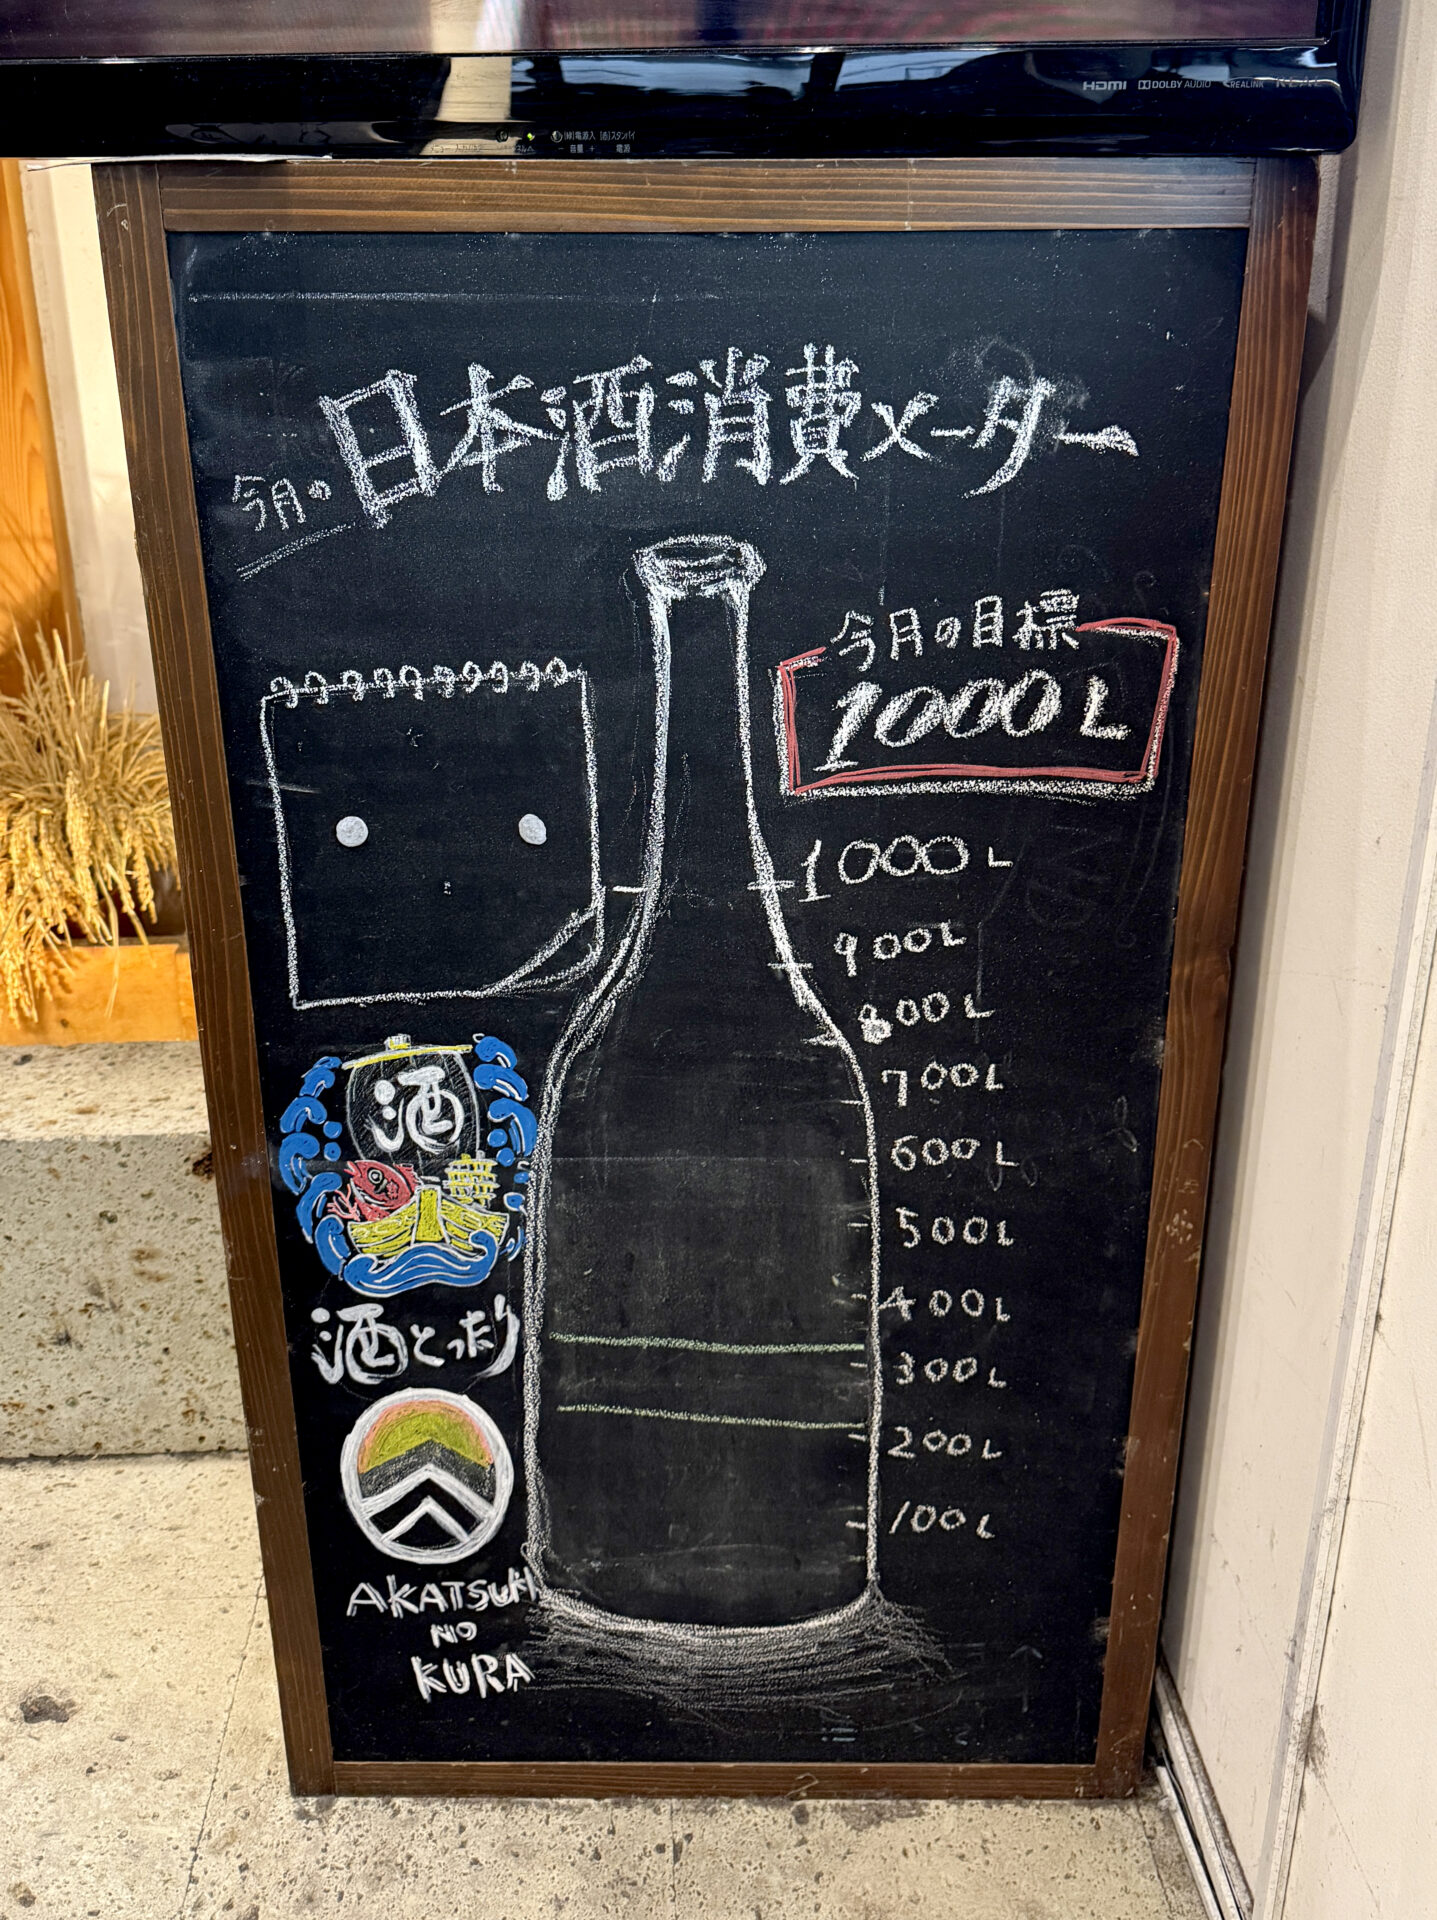 HDMI DOLBY AUDIO REALINK REAL
[緑]電源入 [赤]スタンバイ
− 音量 + 電源
今月の
日本酒消費メーター
今月の目標
1000L
1000L
900L
800L
700L
600L
500L
400L
300L
200L
100L
酒
酒とったり
AKATSUKI
NO
KURA